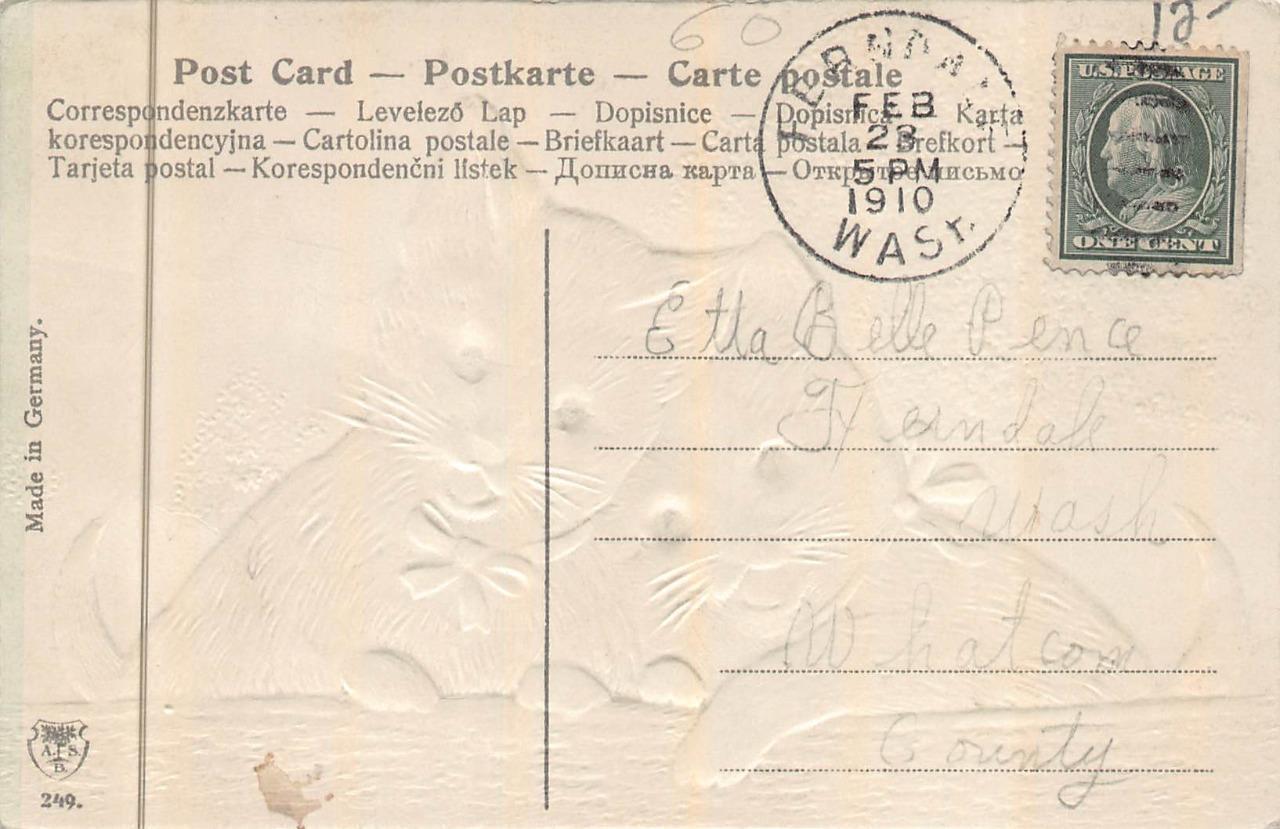 60
12
Post Card — Postkarte — Carte postale
Correspondenzkarte — Levelező Lap — Dopisnice — Dopisnica — Karta
korespondencyjna — Cartolina postale — Briefkaart — Carta postala — Brefkort —
Tarjeta postal — Korespondenční lístek — Дописна карта — Открытое письмо
FERNDALE
FEB
23
5 PM
1910
WASH.
U.S. POSTAGE
ONE CENT
Etta Belle Pence
Ferndale
Wash
Whatcom
County
Made in Germany.
A. S.
B.
249.